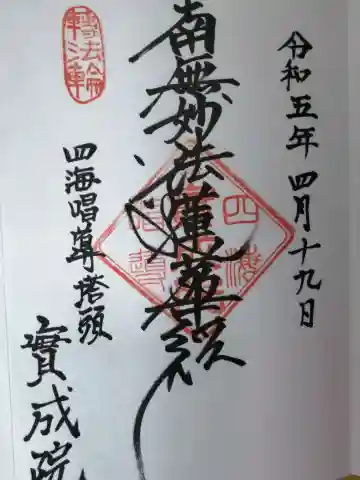 令和五年四月十九日
南無妙法蓮華経
轉法輪
四海唱導塔頭
實成院